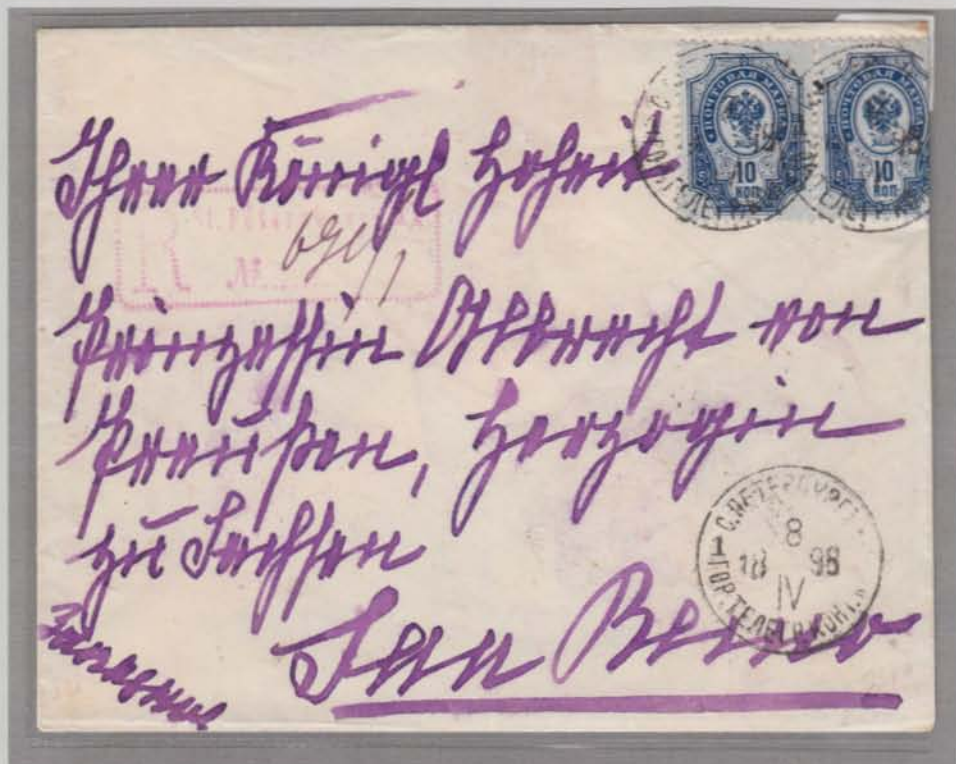 ПОЧТОВАЯ МАРКА ПОЧТОВАЯ МАРКА
10 10
КОП. КОП.
Ihrer Königl Hoheit
R
№
Prinzessin Albrecht von
Preußen, Herzogin
zu Sachsen
С.ПЕТЕРБУРГЪ
8
1 18 98
IV
ГОР.ТЕЛЕГР.КОНТ.
San Remo